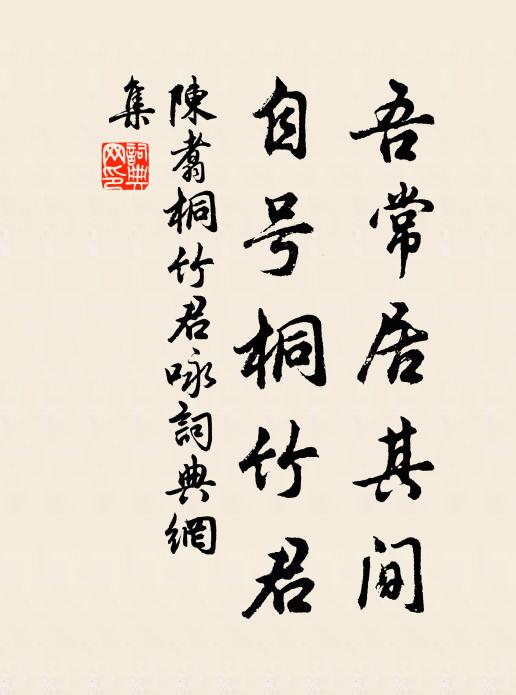 吾常居其间
自号桐竹君
陳翥桐竹君咏詞典網
集
詞典
网印